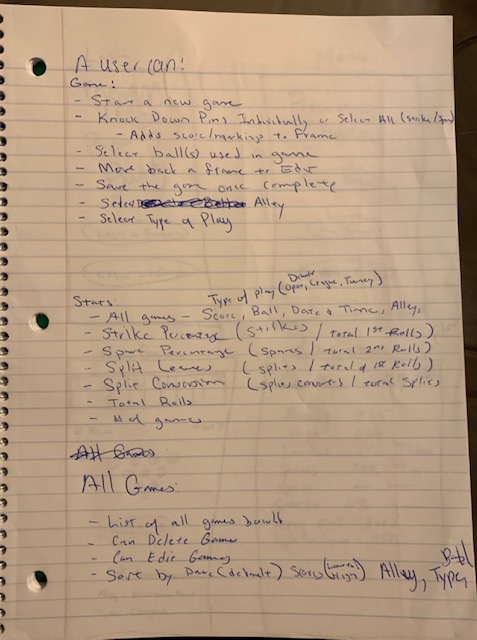 A user can:
Game:
- Start a new game
- Knock Down Pins Individually or Select All (Strike/Spare)
- Adds score/markings to Frame
- Select ball(s) used in game
- Move back a frame to Edit
- Save the game once complete
- Select Alley
- Select Type of Play
Type of play (Default Open, League, Turney)
Stats:
- All games - Score, Ball, Date & Time, Alley,
- Strike Percentage (Strikes / total 1st Rolls)
- Spare Percentage (Spares / Total 2nd Rolls)
- Split Leaves (splits / total of 1st Rolls)
- Split Conversion (splits converted / total Splits)
- Total Rolls
- # of games
All Games
All Games:
- List of all games bowled
- Can Delete Game
- Can Edit Games
- Sort by Date (default) Score (Low to High) Alley, Type, Ball